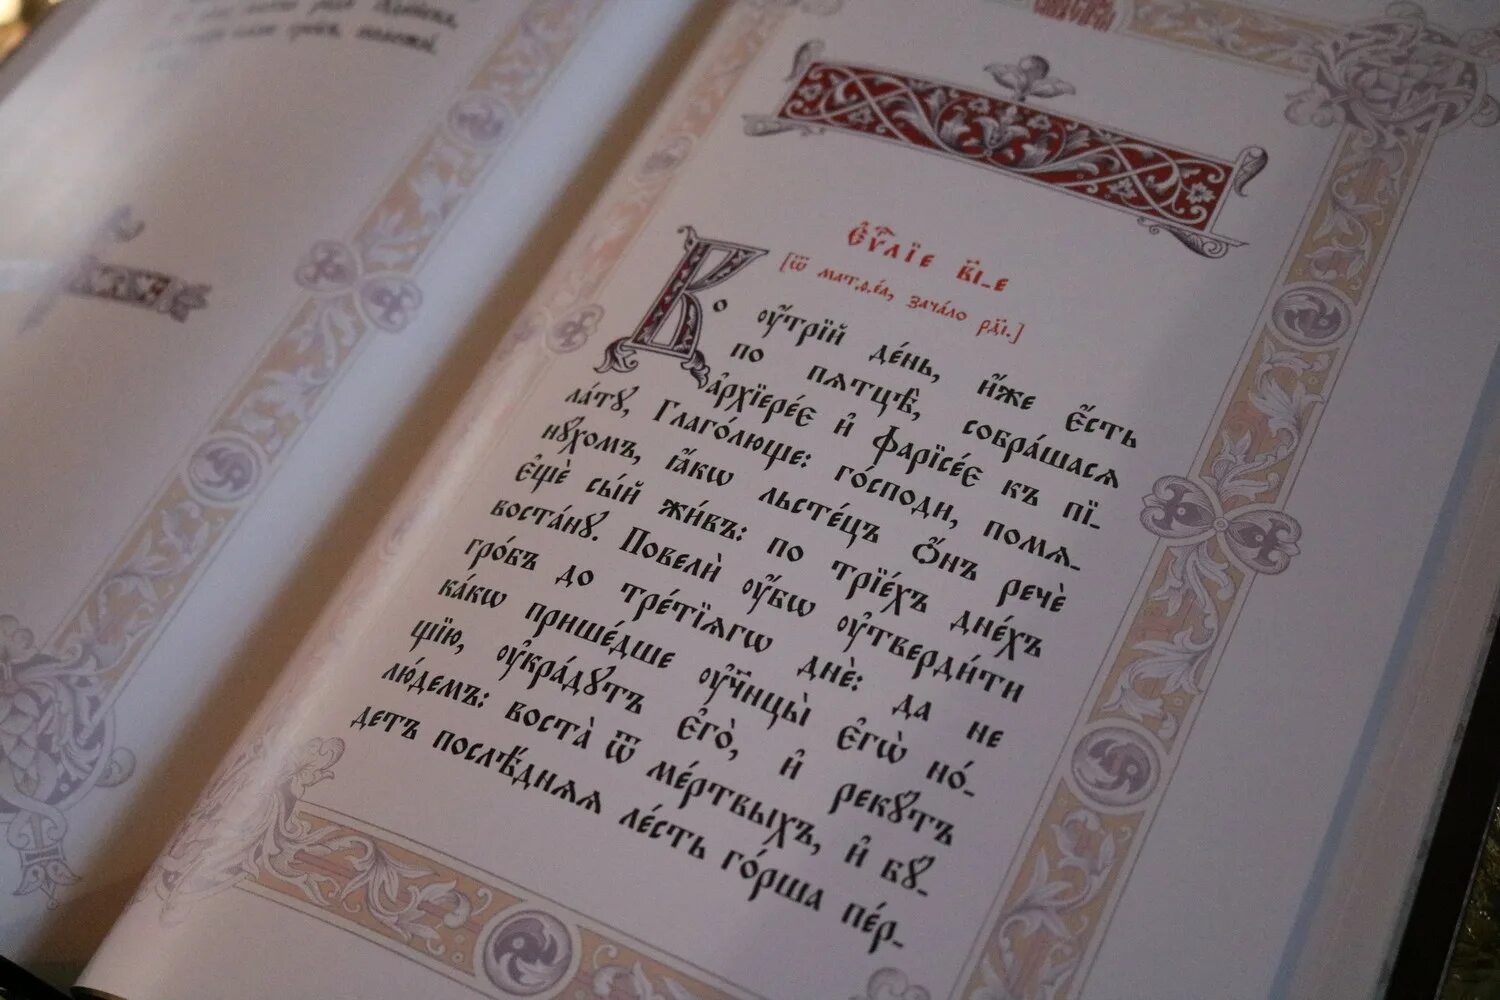 Є҆ѵⷢ҇лїе в҃і-е
[Ѿ матѳеа, зача́ло рд҃і.]
Во оу҆́трїй де́нь, и҆́же є҆́сть
по пѧтцѣ̀, собра́шасѧ
а҆рхїере́є и҆ фарїсе́є къ пї-
ла́тꙋ, Глаго́люще: го́споди, помѧ-
нꙋ́хомъ, ꙗ҆́кѡ льсте́цъ ѻ҆́нъ речѐ
є҆щѐ сы́й жи́въ: по трїе́хъ дне́хъ
воста́нꙋ. Повелѝ оу҆̀бѡ оу҆тверди́ти
гро́бъ до тре́тїѧгѡ днѐ: да не
ка́кѡ прише́дше оу҆чн҃цы̀ є҆гѡ̀ но́-
щїю, оу҆кра́дꙋтъ є҆го̀, и҆ рекꙋ́тъ
лю́демъ: воста̀ ѿ ме́ртвыхъ, и҆ бꙋ́-
детъ послѣ́днѧѧ ле́сть го́рша пе́р-